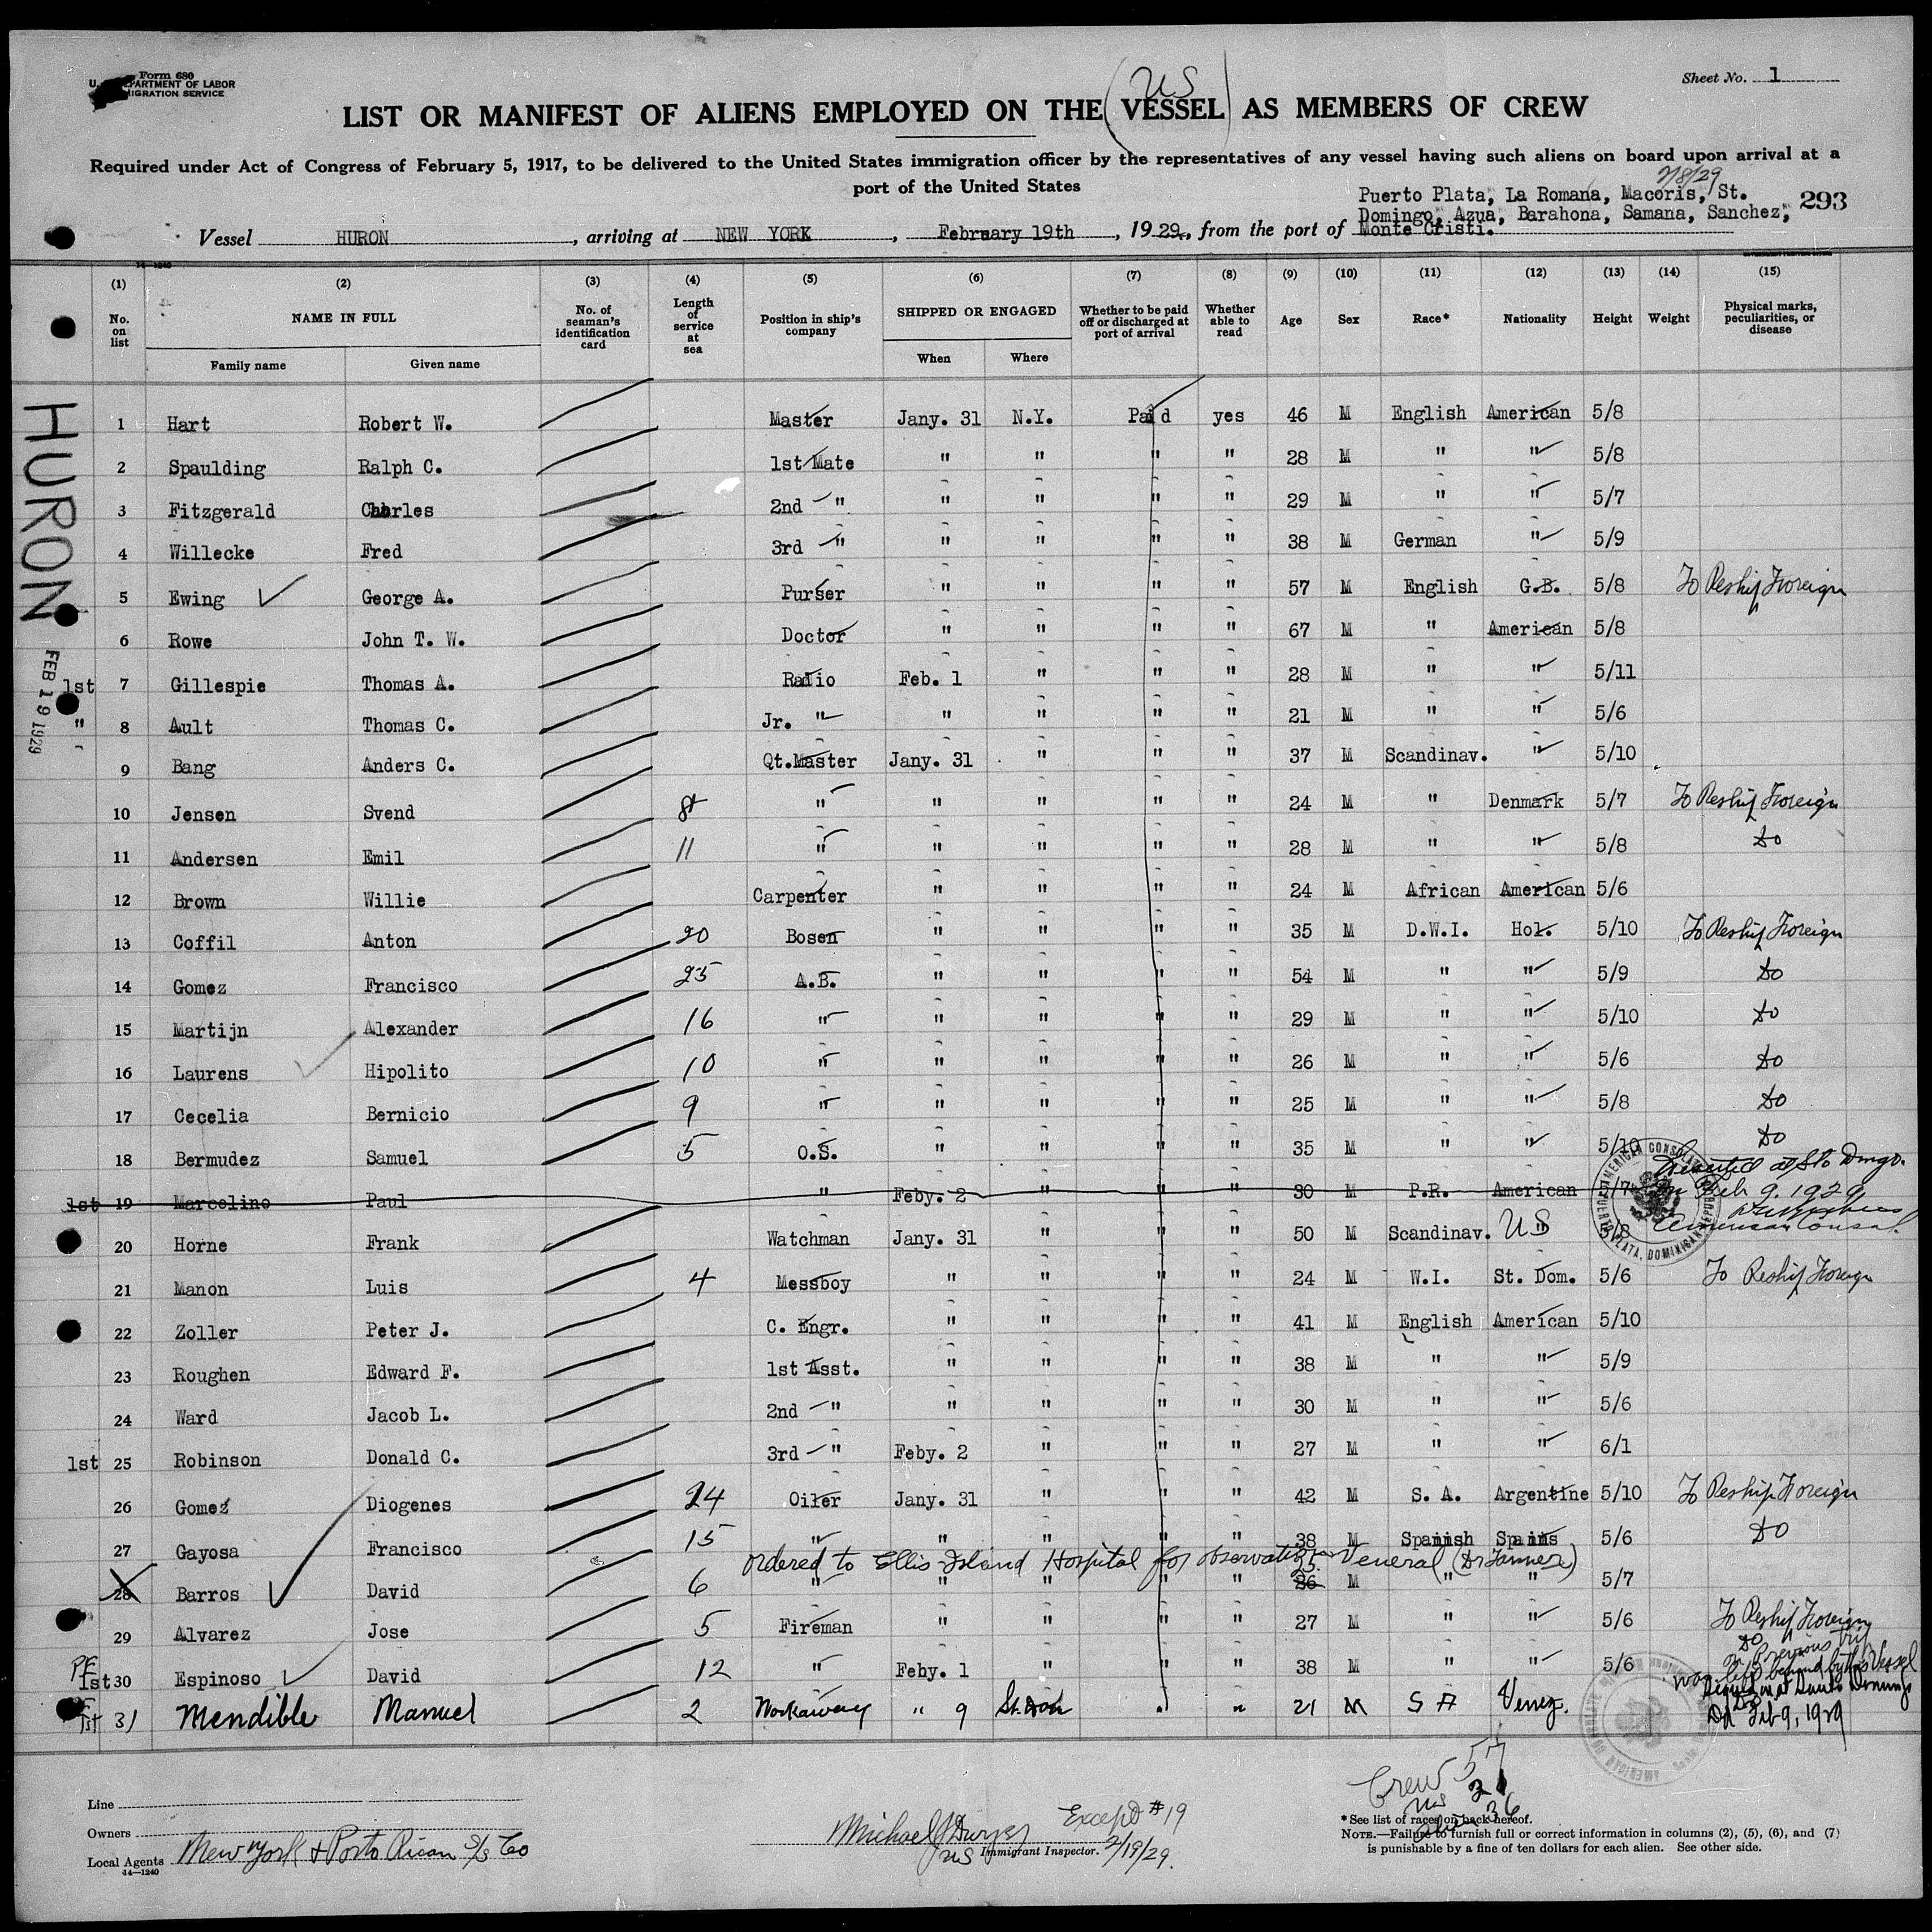 Form 680
U. DEPARTMENT OF LABOR
IMMIGRATION SERVICE
Sheet No. 1
US
LIST OR MANIFEST OF ALIENS EMPLOYED ON THE (VESSEL) AS MEMBERS OF CREW
Required under Act of Congress of February 5, 1917, to be delivered to the United States immigration officer by the representatives of any vessel having such aliens on board upon arrival at a
port of the United States
2/8/29
Puerto Plata, La Romana, Macoris, St.
Domingo, Azua, Barahona, Samana, Sanchez,
293
Vessel HURON, arriving at NEW YORK, February 19th, 1929, from the port of Monte Cristi.
14-1240
(1) (2) (3) (4) (5) (6) (7) (8) (9) (10) (11) (12) (13) (14) (15)
No. on list NAME IN FULL No. of seaman's identification card Length of service at sea Position in ship's company SHIPPED OR ENGAGED Whether to be paid off or discharged at port of arrival Whether able to read Age Sex Race* Nationality Height Weight Physical marks, peculiarities, or disease
Family name Given name When Where
HURON
FEB 19 1929
1 Hart Robert W. Master Jany. 31 N.Y. Paid yes 46 M English American 5/8
2 Spaulding Ralph C. 1st Mate " " " " 28 M " " 5/8
3 Fitzgerald Charles 2nd " " " " " 29 M " " 5/7
4 Willecke Fred 3rd " " " " " 38 M German " 5/9
5 Ewing George A. Purser " " " " 57 M English G.B. 5/8 To Reship Foreign
6 Rowe John T. W. Doctor " " " " 67 M " American 5/8
1st 7 Gillespie Thomas A. Radio Feb. 1 " " " 28 M " " 5/11
" 8 Ault Thomas C. Jr. " " " " " 21 M " " 5/6
9 Bang Anders C. Qt.Master Jany. 31 " " " 37 M Scandinav. " 5/10
10 Jensen Svend 8 " " " " " 24 M " Denmark 5/7 To Reship Foreign
11 Andersen Emil 11 " " " " " 28 M " " 5/8 do
12 Brown Willie Carpenter " " " " 24 M African American 5/6
13 Coffil Anton 20 Bosen " " " " 35 M D.W.I. Hol. 5/10 To Reship Foreign
14 Gomez Francisco 25 A.B. " " " " 54 M " " 5/9 do
15 Martijn Alexander 16 " " " " " 29 M " " 5/10 do
16 Laurens Hipolito 10 " " " " " 26 M " " 5/6 do
17 Cecelia Bernicio 9 " " " " " 25 M " " 5/8 do
18 Bermudez Samuel 5 O.S. " " " " 35 M " " 5/10 do
1st 19 Marcelino Paul " Feby. 2 " " " 30 M P.R. American 5/7 Deserted at Sto Dmgo.
on Feb 9. 1929
American Consul.
20 Horne Frank Watchman Jany. 31 " " " 50 M Scandinav. US 5/8
21 Manon Luis 4 Messboy " " " " 24 M W.I. St. Dom. 5/6 To Reship Foreign
22 Zoller Peter J. C. Engr. " " " " 41 M English American 5/10
23 Roughen Edward F. 1st Asst. " " " " 38 M " " 5/9
24 Ward Jacob L. 2nd " " " " " 30 M " " 5/6
1st 25 Robinson Donald C. 3rd " Feby. 2 " " " 27 M " " 6/1
26 Gomez Diogenes 24 Oiler Jany. 31 " " " 42 M S. A. Argentine 5/10 To Reship Foreign
27 Gayosa Francisco 15 " " " " " 38 M Spanish Spains 5/6 do
ordered to Ellis Island Hospital for observation Veneral (Dr Tanner)
28 Barros David 6 " " " " " 26 25 M " " 5/7
29 Alvarez Jose 5 Fireman " " " " 27 M " " 5/6 To Reship Foreign
PF 1st 30 Espinoso David 12 " Feby. 1 " " " 38 M " " 5/6 do
on Previous trip
was left behind by this Vessel
1st 31 Mendible Manuel 2 Workaway " 9 St. Dom " " 21 M S A Venez. Signed on at Santo Domingo
Feb 9, 1929
AMERICAN CONSULATE PUERTO PLATA, DOMINICAN REPUBLIC
Crew 57
US 21
alien 36
Line
Owners
Local Agents New York & Porto Rican S/S Co
14-1240
Michael J Dwyer Except #19
US Immigrant Inspector. 2/19/29.
* See list of races on back hereof.
NOTE.—Failure to furnish full or correct information in columns (2), (5), (6), and (7)
is punishable by a fine of ten dollars for each alien. See other side.